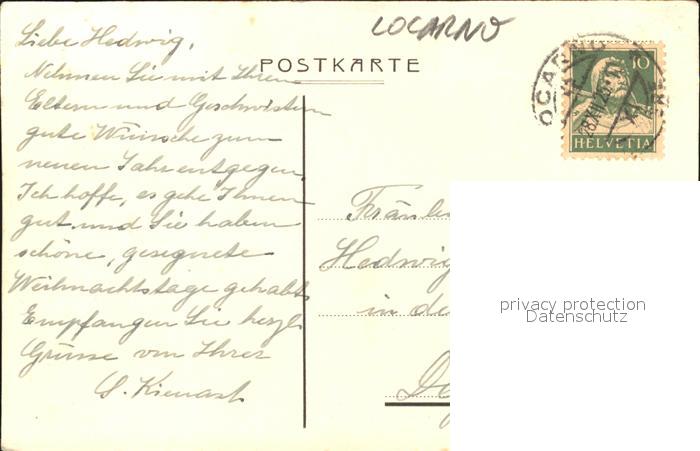 LOCARNO
POSTKARTE
Liebe Hedwig,
Nehmen Sie mit Ihren
Eltern und Geschwistern
gute Wünsche zum
neuen Jahr entgegen.
Ich hoffe, es gehe Ihnen
gut und Sie haben
schöne, gesegnete
Weihnachtstage gehabt.
Empfangen Sie herzl.
Grüsse von Ihrer
S. Kienast
OCARNO
10
HELVETIA
Fräulei
Hedwig
in de
privacy protection
Datenschutz